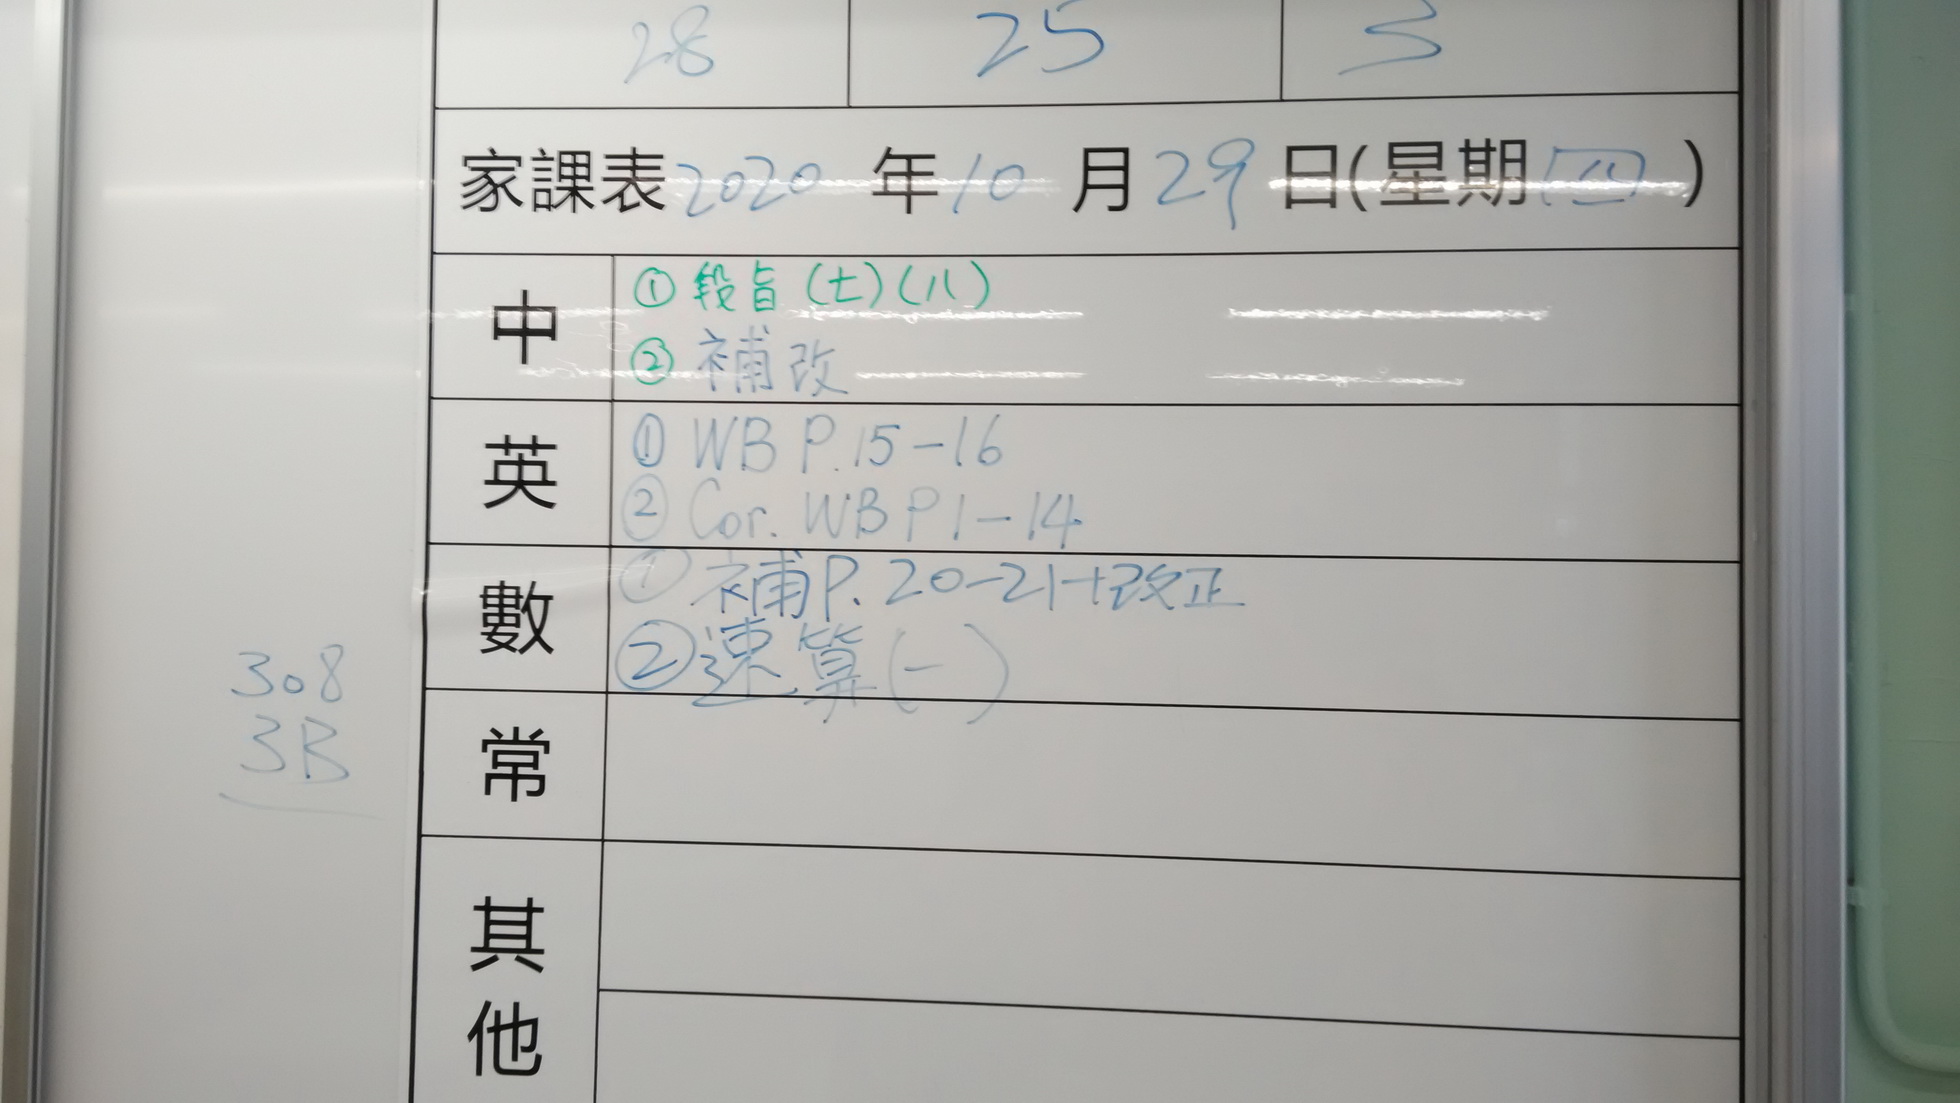 28 25 3
家課表 2020 年 10 月 29 日(星期四)
中
① 段旨 (七)(八)
② 補改
英
① WB P.15-16
② Cor. WB P1-14
數
① 補P.20-21+改正
② 速算(一)
308
3B
常
其他